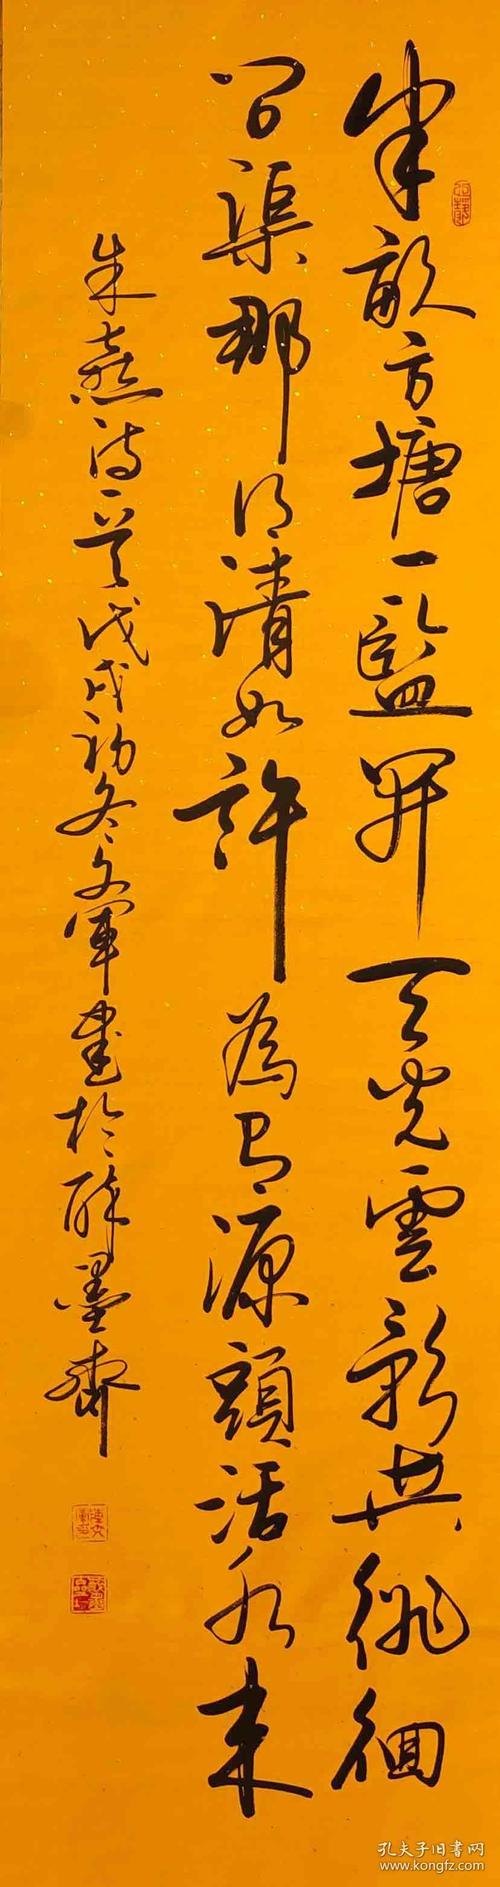 半畝方塘一鑑開天光雲影共徘徊
問渠那得清如許為有源頭活水來
朱熹詩一首戊戌初冬文軍書於醉墨齋
孔夫子旧书网
www.kongfz.com